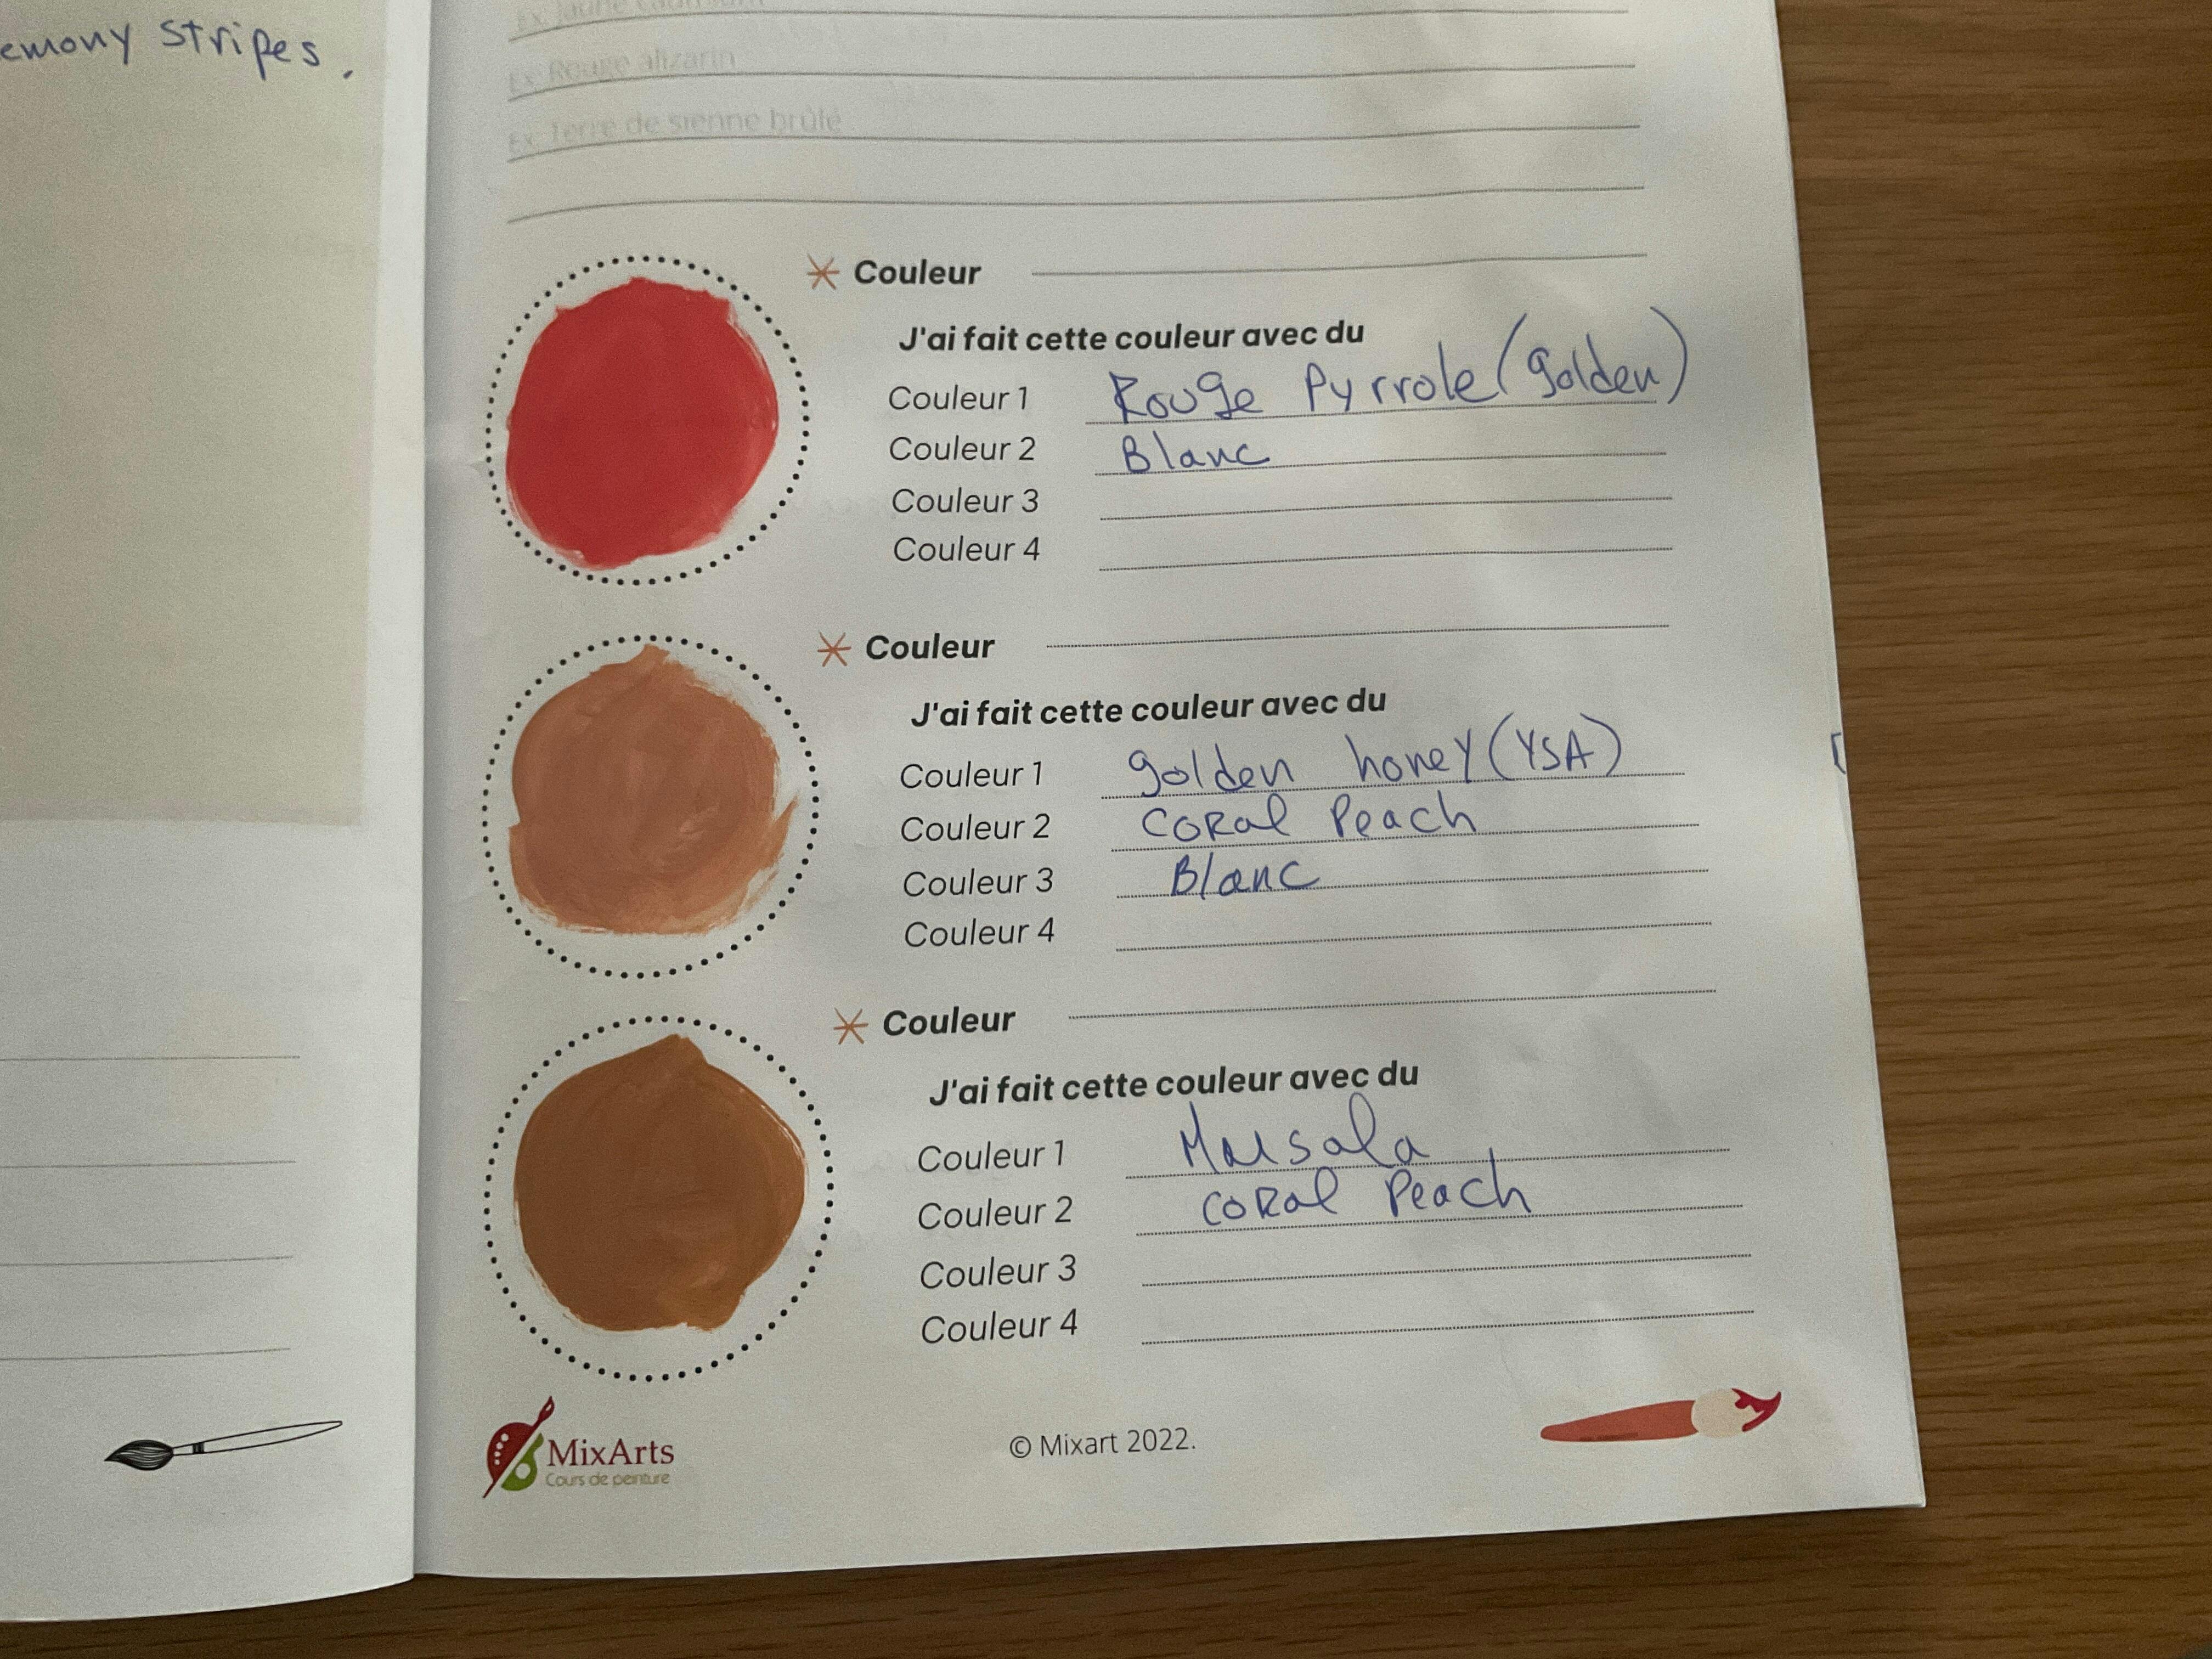 emony stripes.
Ex. Rouge alizarin
Ex. Terre de sienne brûlé
Couleur
J'ai fait cette couleur avec du
Couleur 1 Rouge Pyrrole (golden)
Couleur 2 Blanc
Couleur 3
Couleur 4
Couleur
J'ai fait cette couleur avec du
Couleur 1 golden honey (YSA)
Couleur 2 Coral Peach
Couleur 3 Blanc
Couleur 4
Couleur
J'ai fait cette couleur avec du
Couleur 1 Marsala
Couleur 2 Coral Peach
Couleur 3
Couleur 4
MixArts
Cours de peinture
© Mixart 2022.